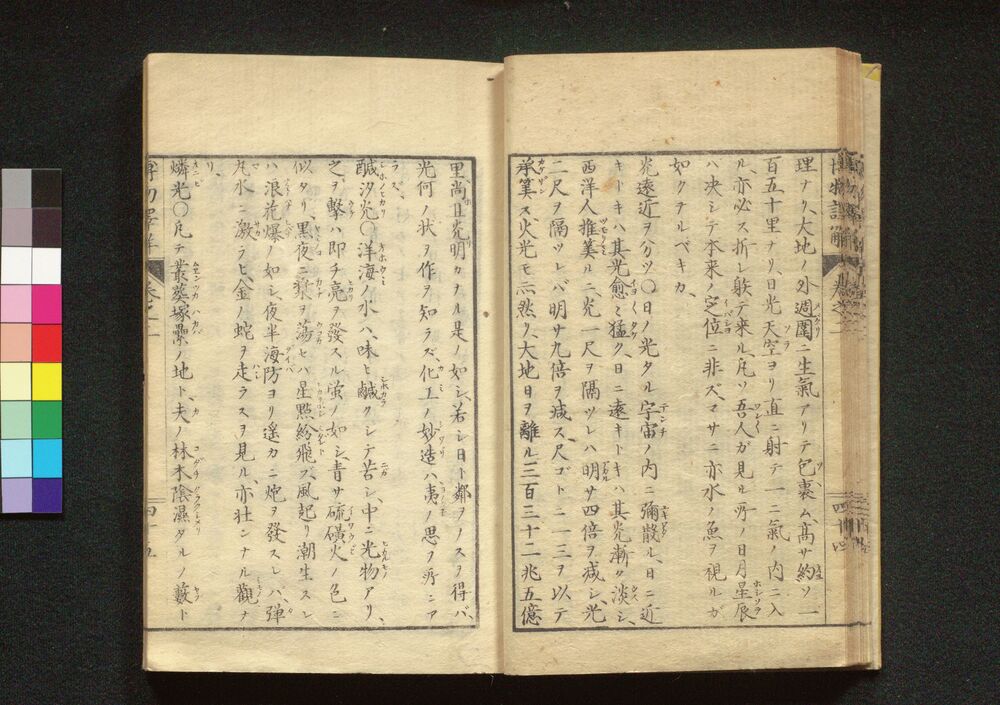 博物語解 卷之二
理ナリ、大地ノ外週圍ニ生氣アリテ包裹ム、高サ約ソ一
百五十里ナリ、日光天空ヨリ直ニ射テ一ニ氣ノ内ニ入
ル、亦必ス折レ射テ来ル、凡ソ吾人ガ見ル所ノ日月星辰
ハ、决シテ本来ノ定位ニ非ズ、マサニ亦水ノ魚ヲ視ルガ
如クナルベキカ、
光遠近ヲ分ツ〇日ノ光タル宇宙ノ内ニ彌散ル、日ニ近
キトキハ其光愈ミ猛ク、日ニ遠キトキハ其光漸ク淡シ、
西洋人推筭ルニ光一尺ヲ隔ツレハ明サ四倍ヲ减シ、光
二尺ヲ隔ツレバ明サ九倍ヲ减ス尺ゴトニ一三ヲ以テ
承筭ス、火光モ亦然リ、大地日ヲ離ル三百三十二兆五億
里、尚且光明カナル是ノ如シ、若シ日ト鄰ヲノスヲ得バ、
光何ノ狀ヲ作ヲ知ラズ、化工ノ妙造ハ夷ノ思ヲ所ニア
ラズ、
醎汐光〇洋海ノ水ハ、味ヒ鹹クシテ苦シ、中ニ光物アリ、
之ヲ擊ハ即チ亮ヲ發スル蛍ノ如シ、青サ硫磺火ノ色ニ
似タリ、黒夜ニ槳ヲ蕩セハ星點紛飛フ、風起リ潮生スレ
ハ、浪花爆ノ如シ、夜半海防ヨリ遥カニ炮ヲ發スレハ、彈
丸水ニ激ラヒ、金ノ蛇ヲ走ラスヲ見ル、亦壮ンナル觀ナ
リ、
燐光〇凡テ叢葬塚纍ノ地ト、夫ノ林木陰濕タルノ藪ト